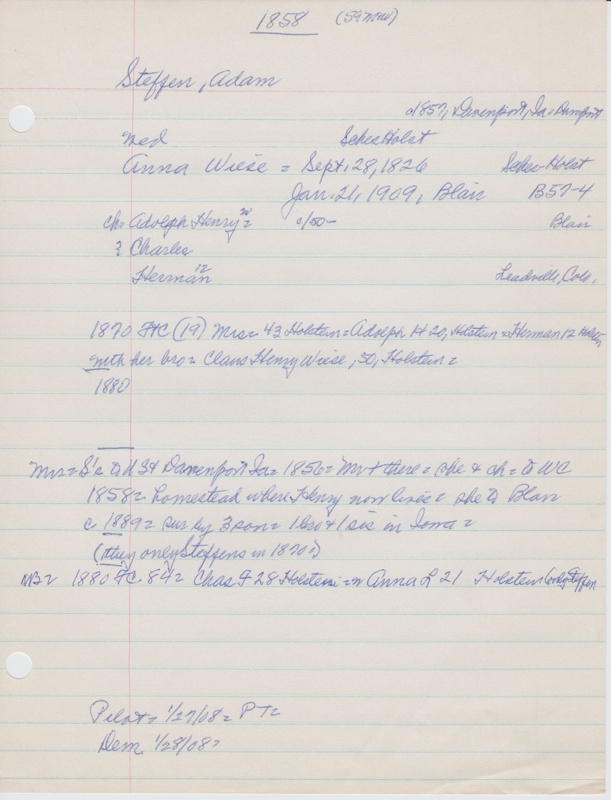 1858 (59 Mow)
Steffen, Adam
d1857, Davenport, Ia = Davenport
med Schleswig Holst
Anna Wiese = Sept. 28, 1826 Holst
Jan. 21, 1909, Blair B57-4
ch = Adolph Henry 20 = Blair
? Charles
Herman 12 Leadville, Colo.
1870 FHC (19) Mrs = 43 Holstein = Adolph H 20, Holstein = Herman 12
with her bro = Claus Henry Wiese, 50, Holstein =
1880
Mrs = S's to US & Davenport Ia = 1856 = Mr + there = she & ch = to WC
1858 = homestead where Henry now lives = she to Blair
c 1889 = sur by 3 son = 1 bro & 1 sis in Iowa =
(they only Steffens in 1870?)
NB = 1880 FC 84 = Chas F 28 Holstein = Anna L 21 Holstein (only Steffen
Pilot = 1/27/08 = PT =
Dem. 1/28/08 =